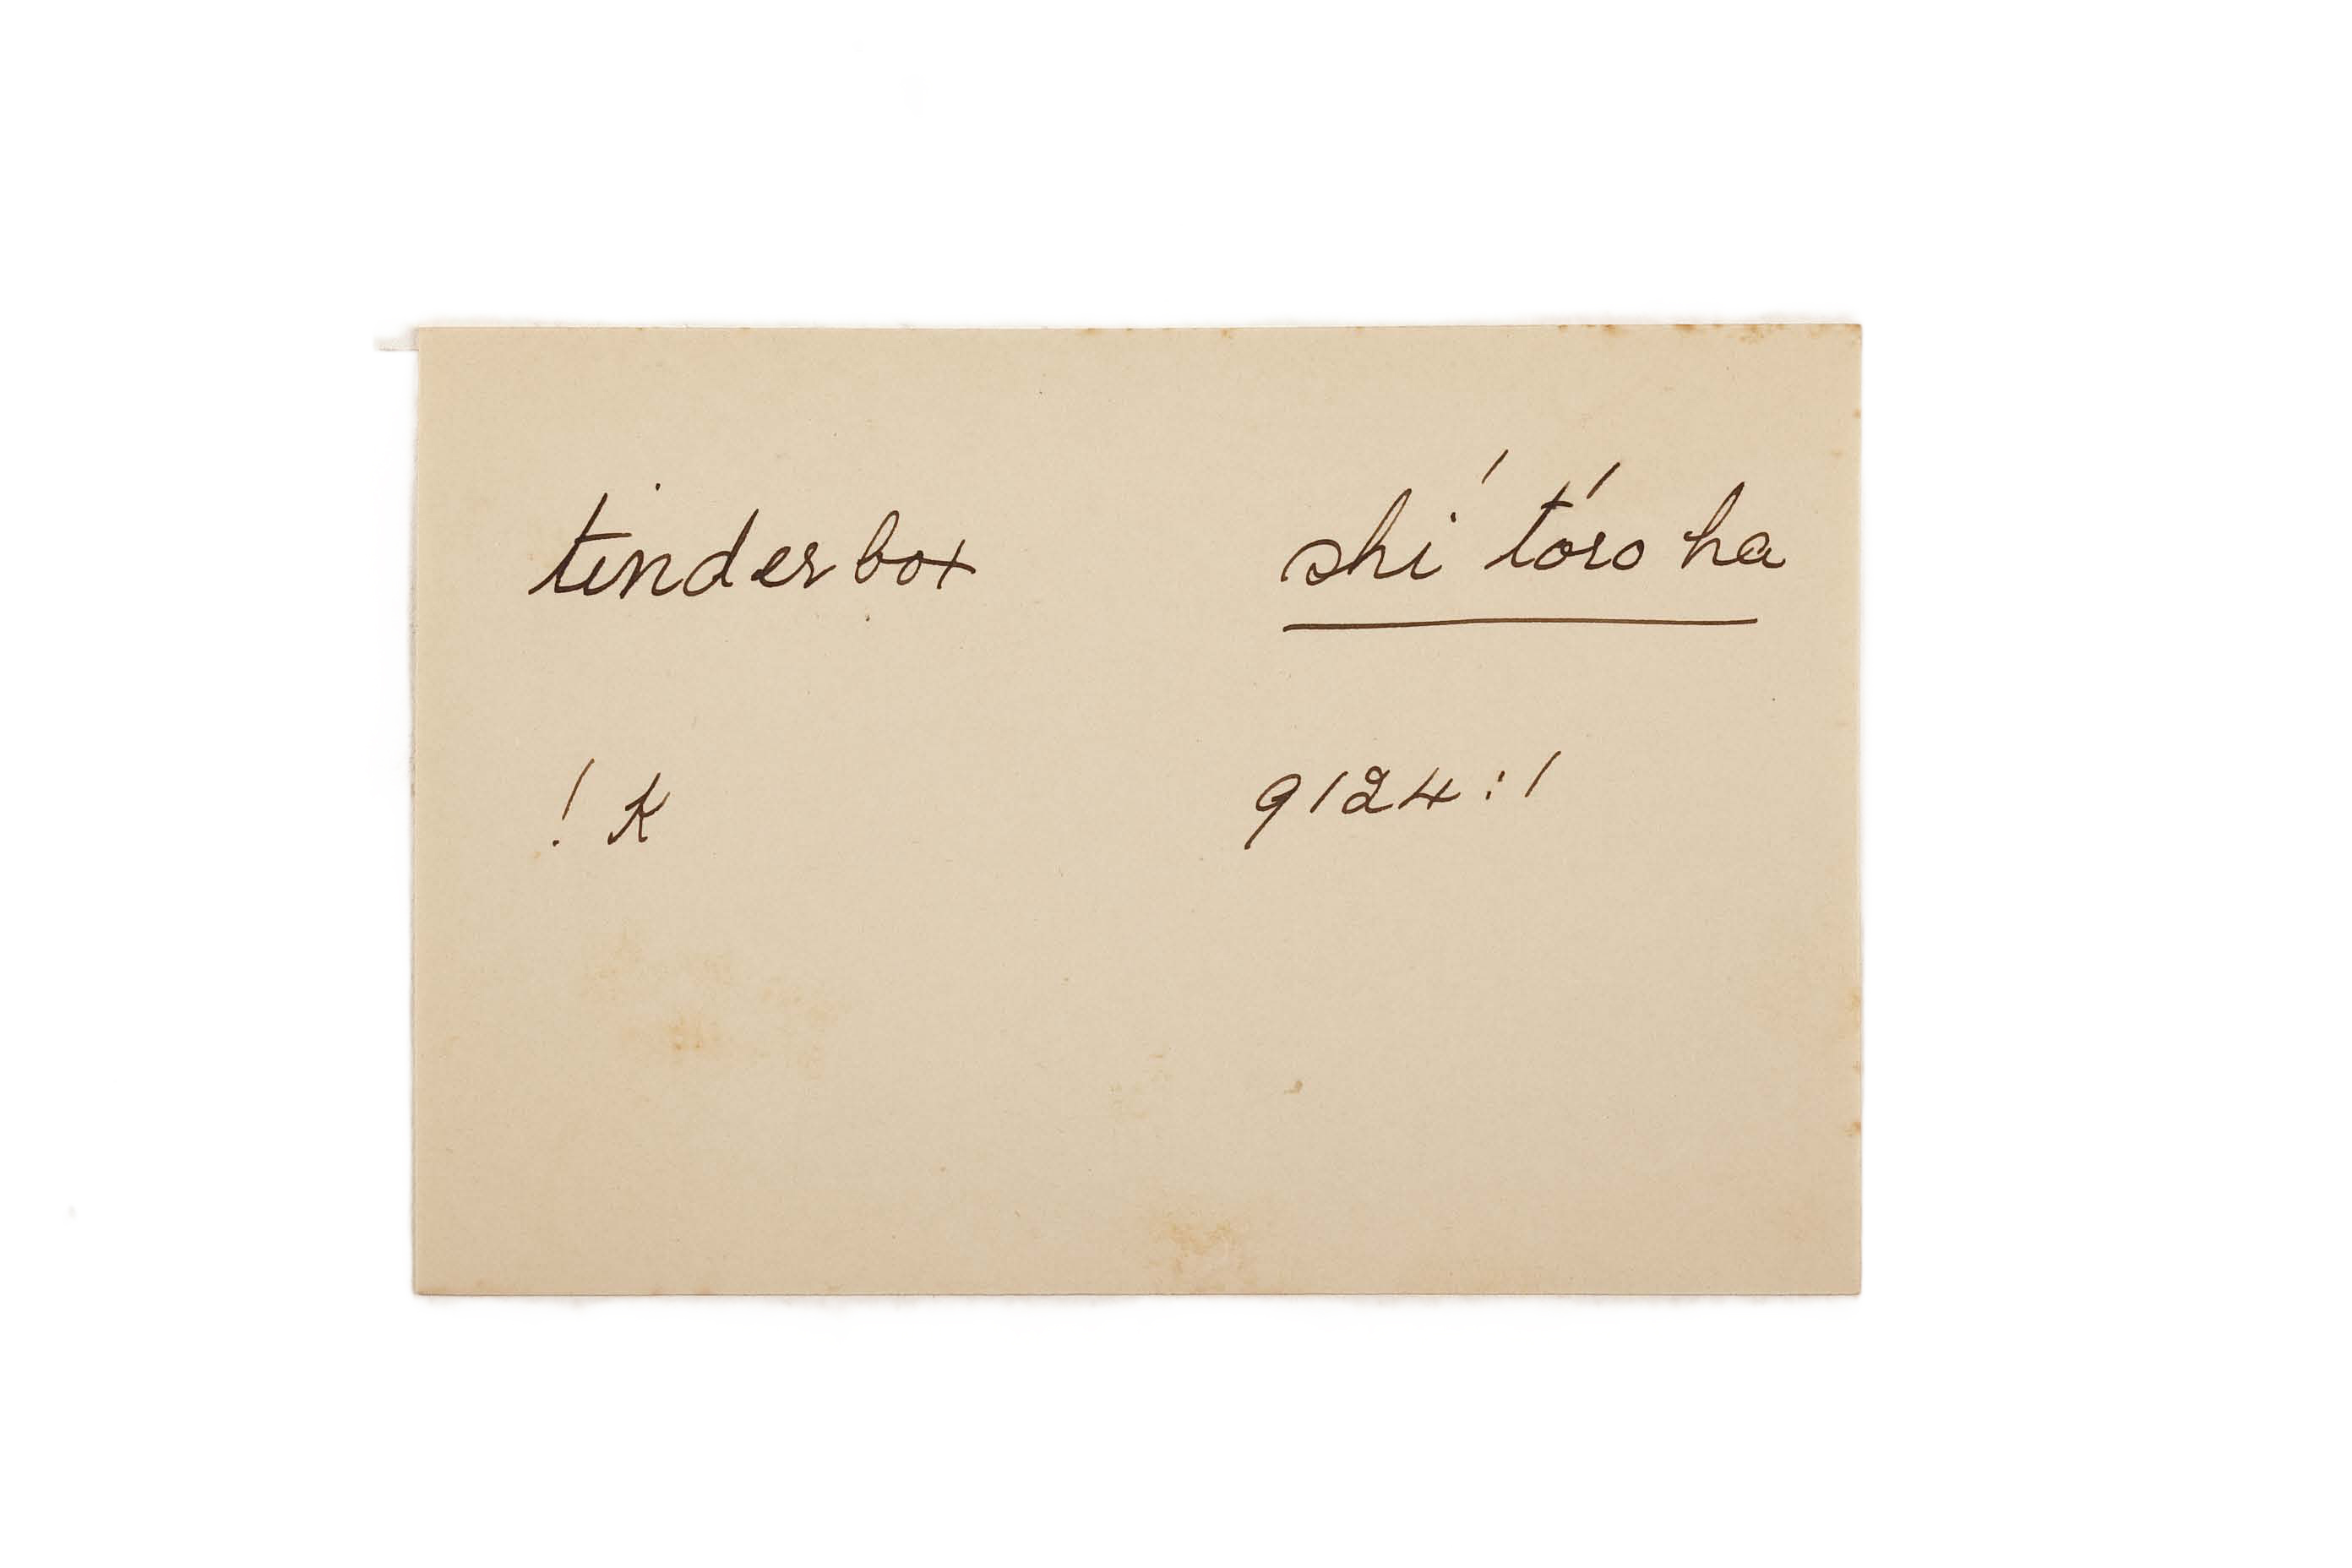 tinderbox shí tóro ha
! K 9124:1